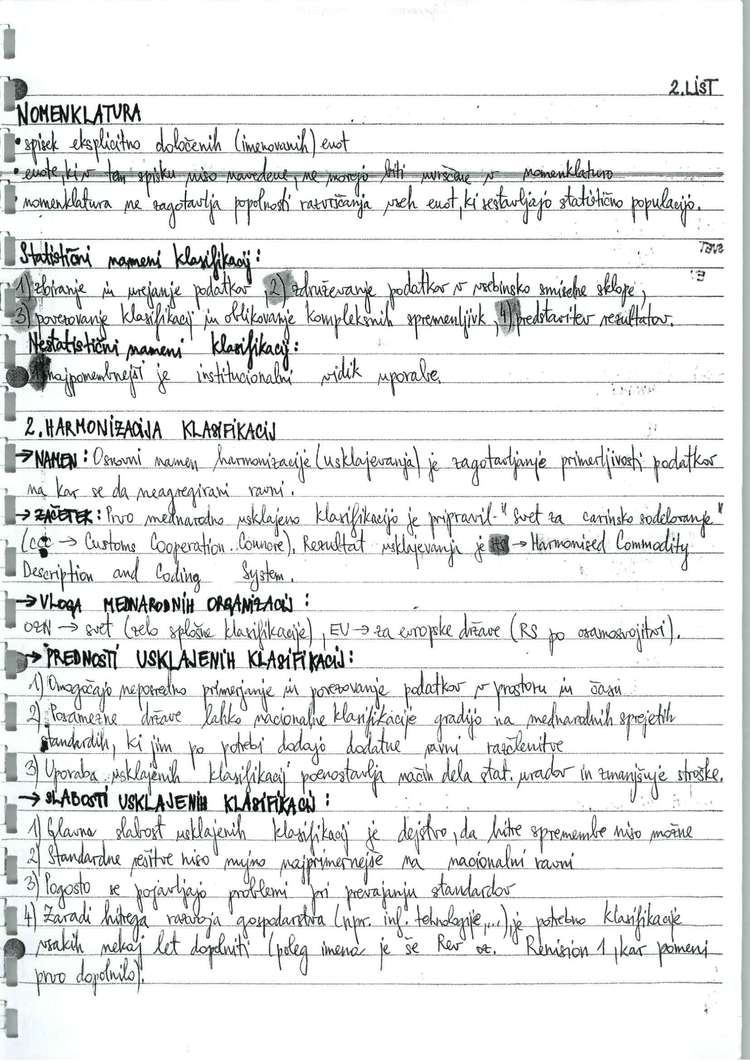 2. LIST
NOMENKLATURA
• spisek eksplicitno določenih (imenovanih) enot
• enote, ki v tem spisku niso navedene, ne morejo biti uvrščene v nomenklaturo
• nomenklatura ne zagotavlja popolnosti razvrščanja vseh enot, ki sestavljajo statistično populacijo.
Statistični nameni klasifikacij:
1) zbiranje in urejanje podatkov 2) združevanje podatkov v vsebinsko smiselne sklope,
3) povezovanje klasifikacij in oblikovanje kompleksnih spremenljivk, 4) predstavitev rezultatov.
Nestatistični nameni klasifikacij:
najpomembnejši je institucionalni vidik uporabe.
2. HARMONIZACIJA KLASIFIKACIJ
→ NAMEN: Osnovni namen harmonizacije (usklajevanja) je zagotavljanje primerljivosti podatkov
na kar se da neagregirani ravni.
→ ZAČETEK: Prvo mednarodno usklajeno klasifikacijo je pripravil "Svet za carinsko sodelovanje"
(CCC → Customs Cooperation Councre). Rezultat usklajevanja je HS → Harmonised Commodity
Description and Coding System.
→ VLOGA MEDNARODNIH ORGANIZACIJ:
OZN → svet (zelo splošne klasifikacije), EU → za evropske države (RS po osamosvojitvi).
→ PREDNOSTI USKLAJENIH KLASIFIKACIJ:
1) Omogočajo neposredno primerjanje in povezovanje podatkov v prostoru in času
2) Posamezne države lahko nacionalne klasifikacije gradijo na mednarodnih sprejetih
standardih, ki jim po potrebi dodajo dodatne ravni razčlenitve
3) Uporaba usklajenih klasifikacij poenostavlja način dela stat. uradov in zmanjšuje stroške.
→ SLABOSTI USKLAJENIH KLASIFIKACIJ:
1) Glavna slabost usklajenih klasifikacij je dejstvo, da hitre spremembe niso možne
2) Standardne rešitve niso nujno najprimernejše na nacionalni ravni
3) Pogosto se pojavljajo problemi pri prevajanju standardov
4) Zaradi hitrega razvoja gospodarstva (npr. inf. tehnologije,...), je potrebno klasifikacije
vsakih nekaj let dopolniti (poleg imena je še Rev oz. Remision 1, kar pomeni
prvo dopolnilo).